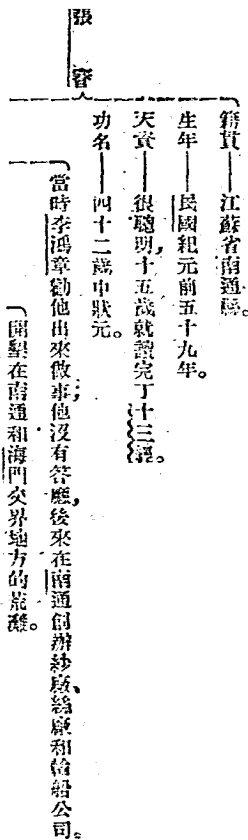 張謇
籍貫——江蘇省南通縣。
生年——民國紀元前五十九年。
天資——很聰明，十五歲就讀完了十三經。
功名——四十二歲中狀元。
當時李鴻章勸他出來做事，他沒有答應，後來在南通創辦紗廠、絲廠和輪船公司。
開墾在南通和海門交界地方的荒灘。